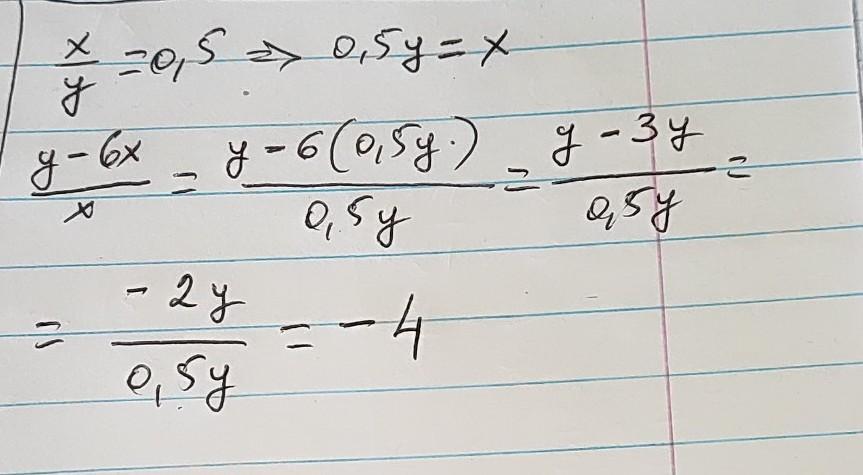 x/y = 0,5 => 0,5y = x
(y - 6x)/x = (y - 6(0,5y.))/(0,5y) = (y - 3y)/(0,5y) =
= (-2y)/(0,5y) = -4